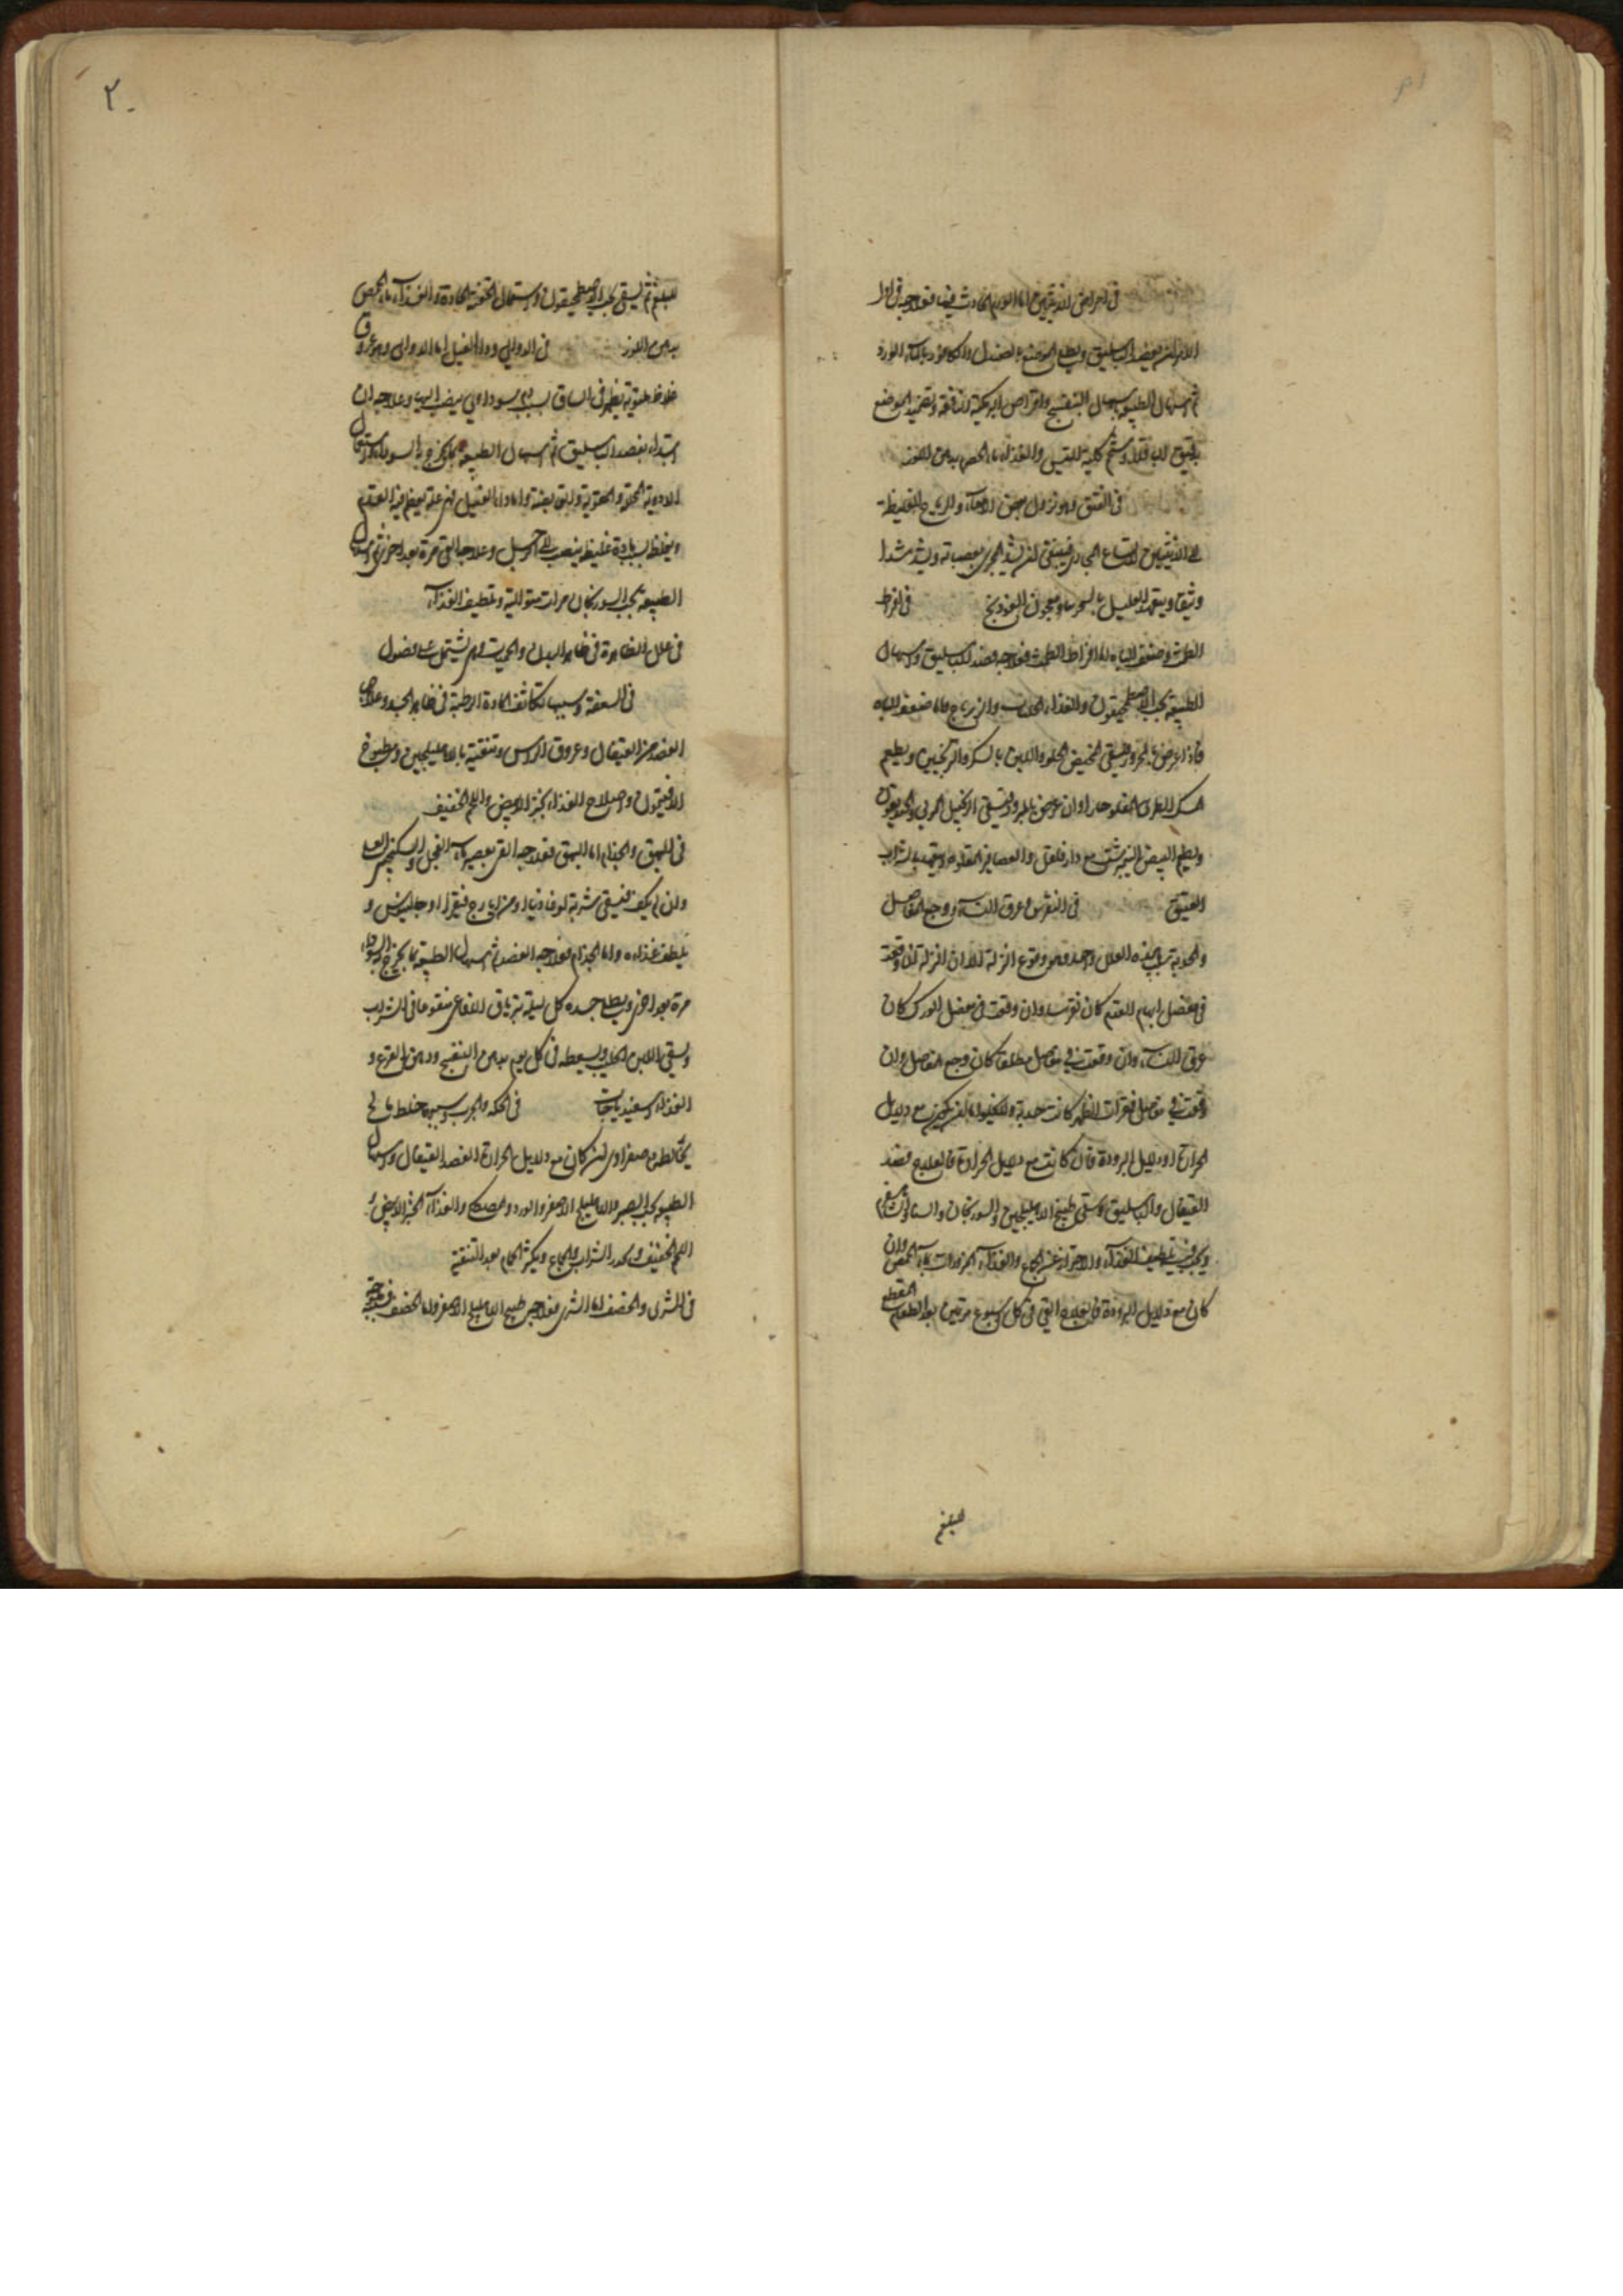 في امراض الانثيين اما الورم الحادث فيها فعلاجه في اول
الامر ان يفصد الباسليق ويطلى الموضع بالصندل والكافور بماء الورد
ثم اسهال الطبيعة والموضع
بدقيق الباقلا وشحم كلية التيس والغذاء ماء الحمص بدهن اللوز
في الفتق وهو نزول بعض الامعاء والرياح الغليظة
الى الانثيين لاتساع المجارى فينبغى ان يشد المجرى بعصابة ويشد شدا
وثيقا ويتعهد العليل ومعجون الفوذنج في افراط
الطمث وضعف الباه اما افراط الطمث فعلاجه فصد الباسليق واسهال
الطبيعة بحب الاصطمحيقون والغذاء والزيرباج واما ضعف الباه
فاذا عرض بالمحرور فيسقى المخيض الحلو واللبن بالسكر والترنجبين ويطعم
السمك الطرى المقلو حارا وان عرض بالمبرود فيسقى الزنجبيل المربى
ويطعم البيض النيمرشت مع دارفلفل والعصافير المقلوة بالشراب
العتيق في النقرس وعرق النساء ووجع المفاصل
والحدبة سبب هذه العلل واحد وهو وقوع النزلة الا ان النزلة ان وقعت
في مفصل ابهام القدم كان نقرسا وان وقعت في مفصل الورك كان
عرق النساء وان وقعت في مفاصل مطلقا كان وجع المفاصل وان
وقعت في مفاصل فقرات الظهر كانت حدبة اما ان يكون مع دلايل
الحرارة او دلايل البرودة فان كانت مع دلايل الحرارة فالعلاج فصد
القيفال والباسليق وسقى طبيخ الاهليلجين والسورنجان والسنا
ويجب تلطيف الغذاء والاحتراز عن الجماع والغذاء المزورات بماء الحمص وان
كان مع دلايل البرودة فالعلاج القئ في كل اسبوع مرتين بعد الطعام المقطع
البلغم
٢٠
للبلغم ثم يسقى حب الاصطمحيقون واستعمال الحقن الحادة والغذاء ماء الحمص
بدهن اللوز في الدوالى وداء الفيل اما الدوالى وهو عروق
غلاظ ملتوية يظهر في الساق بسبب دم سوداوى ينصب اليها وعلاجه ان
ابتداء بفصد الباسليق ثم اسهال الطبيعة بما يخرج السوداء
واما داء الفيل فهى علة يعظم فيه القدم
ويغلظ بسبب مادة غليظة ينصب الى الرجل وعلاجه القئ مرة بعد اخرى ثم اسهال
الطبيعة بحب السورنجان مرات متوالية وتلطيف الغذاء
في علل الظاهرة في ظاهر البدن والحميات وهى يشتمل على فصول
في السعفة وسببها تكاثف المادة الرطبة في ظاهر الجلد وعلاجها
الفصد من القيفال وعروق الراس وتنقية بالاهليلجين ومطبوخ
الافتيمون واصلاح الغذاء بخبز الابيض واللحم الخفيف
في البهق والجذام اما البهق فعلاجه القئ بعصير ماء الفجل والسكنجبين
وان لم يكف فيسقى شربة لوغاذيا او من ايارج فيقرا او جالينوس و
يلطف غذاءه واما الجذام فعلاجه الفصد ثم اسهال الطبيعة بما يخرج السوداء
مرة بعد اخرى ويطلى جسده كل ليلة بترياق الافاعى منقوعا في الشراب
ويسقى اللبن الحليب ويسعطه في كل يوم بدهن البنفسج ودهن القرع و
الغذاء اسفيدباجات في الحكة والجرب وسببها خلط مالح
يخالطه دم صفراوى ان كان مع دلايل الحرارة الفصد القيفال واسهال
الطبيعة بحب الصبر والاهليلج الاصفر والورد والمصطكى والغذاء الخبز الابيض
اللحم الخفيف وليحذر الشراب والجماع ويكثر الحمام بعد التنقية
في الشرى والحصف اما الشرى فعلاجه طبيخ اهليلج الاصفر واما الحصف فعلاجه